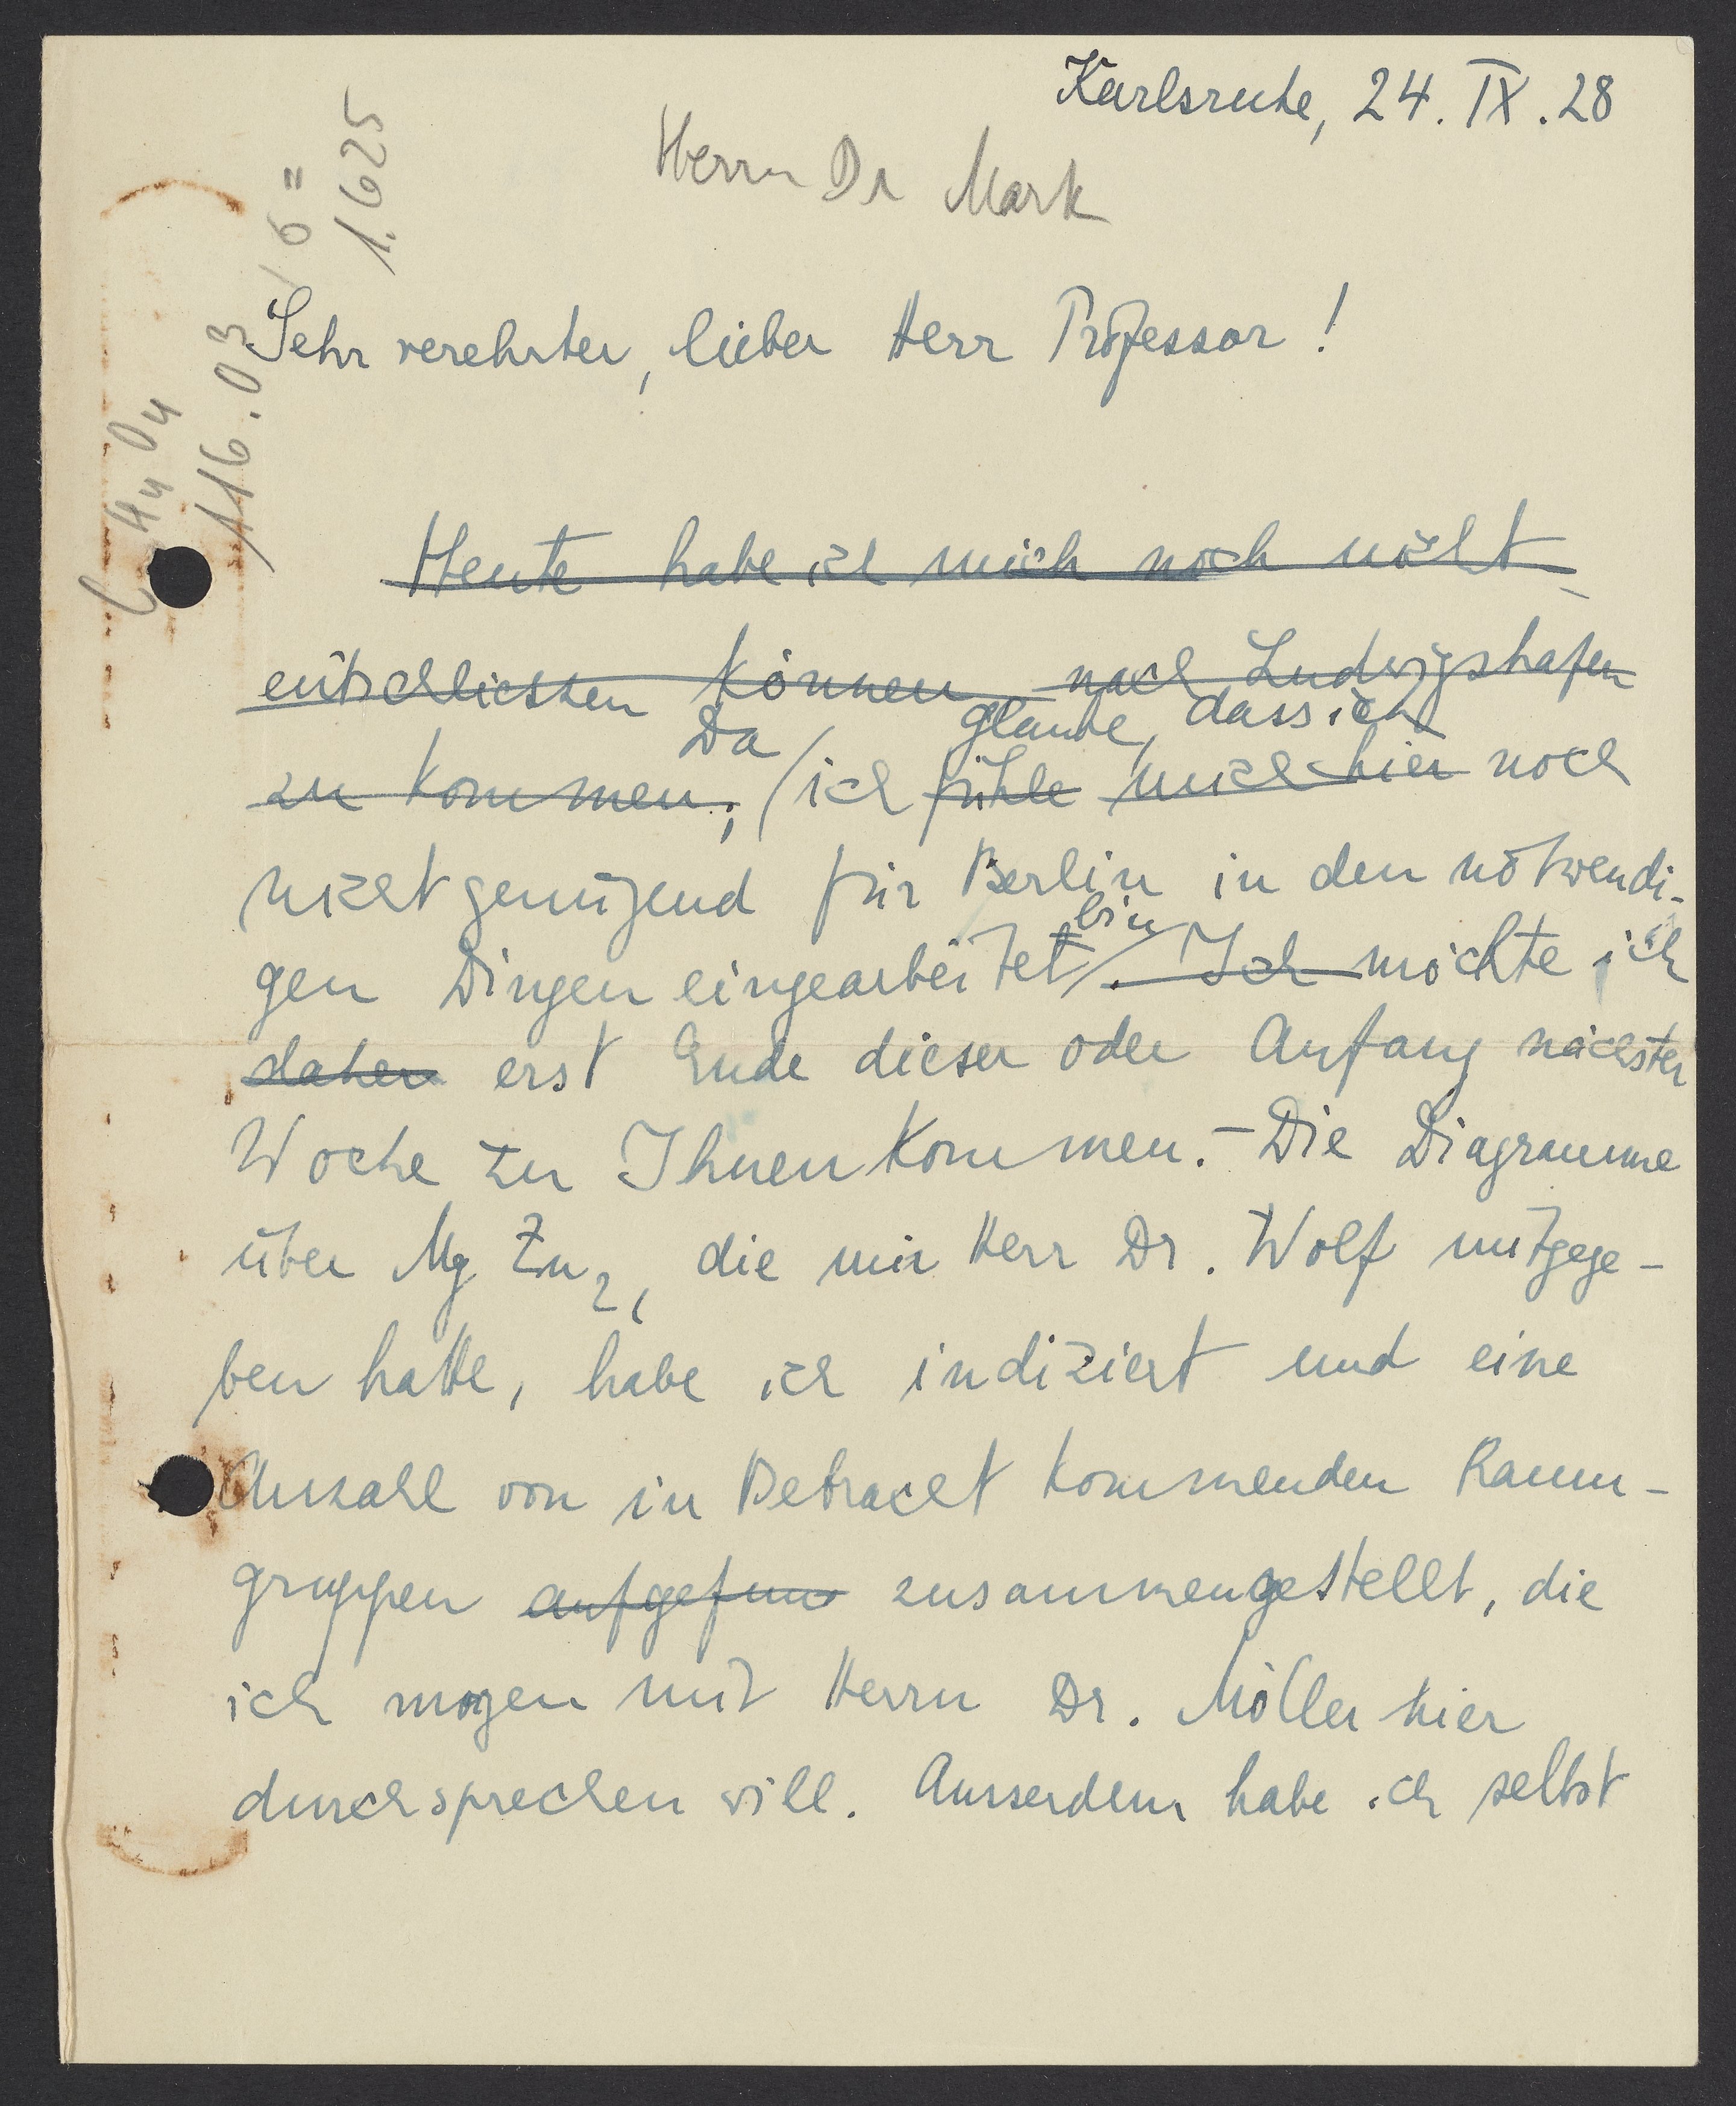 Karlsruhe, 24. IX. 28
Herrn Dr Mark
Sehr verehrter, lieber Herr Professor!
Heute habe ich mich noch nicht
entschliessen können, nach Ludwigshafen
Da glaube, dass ich
zu kommen; ich fühle mich hier noch
nicht genügend für Berlin in den notwendi-
bin
gen Dingen eingearbeitet. Ich möchte ich
daher erst Ende dieser oder Anfang nächster
Woche zu Ihnen kommen. – Die Diagramme
über MgZn2, die mir Herr Dr. Wolf mitgege-
ben hatte, habe ich indiziert und eine
Anzahl von in Betracht kommenden Raum-
gruppen aufgefun zusammengestellt, die
ich morgen mit Herrn Dr. Möller hier
durchsprechen will. Ausserdem habe ich selbst
C4H4O4
116.03
6=
1.625